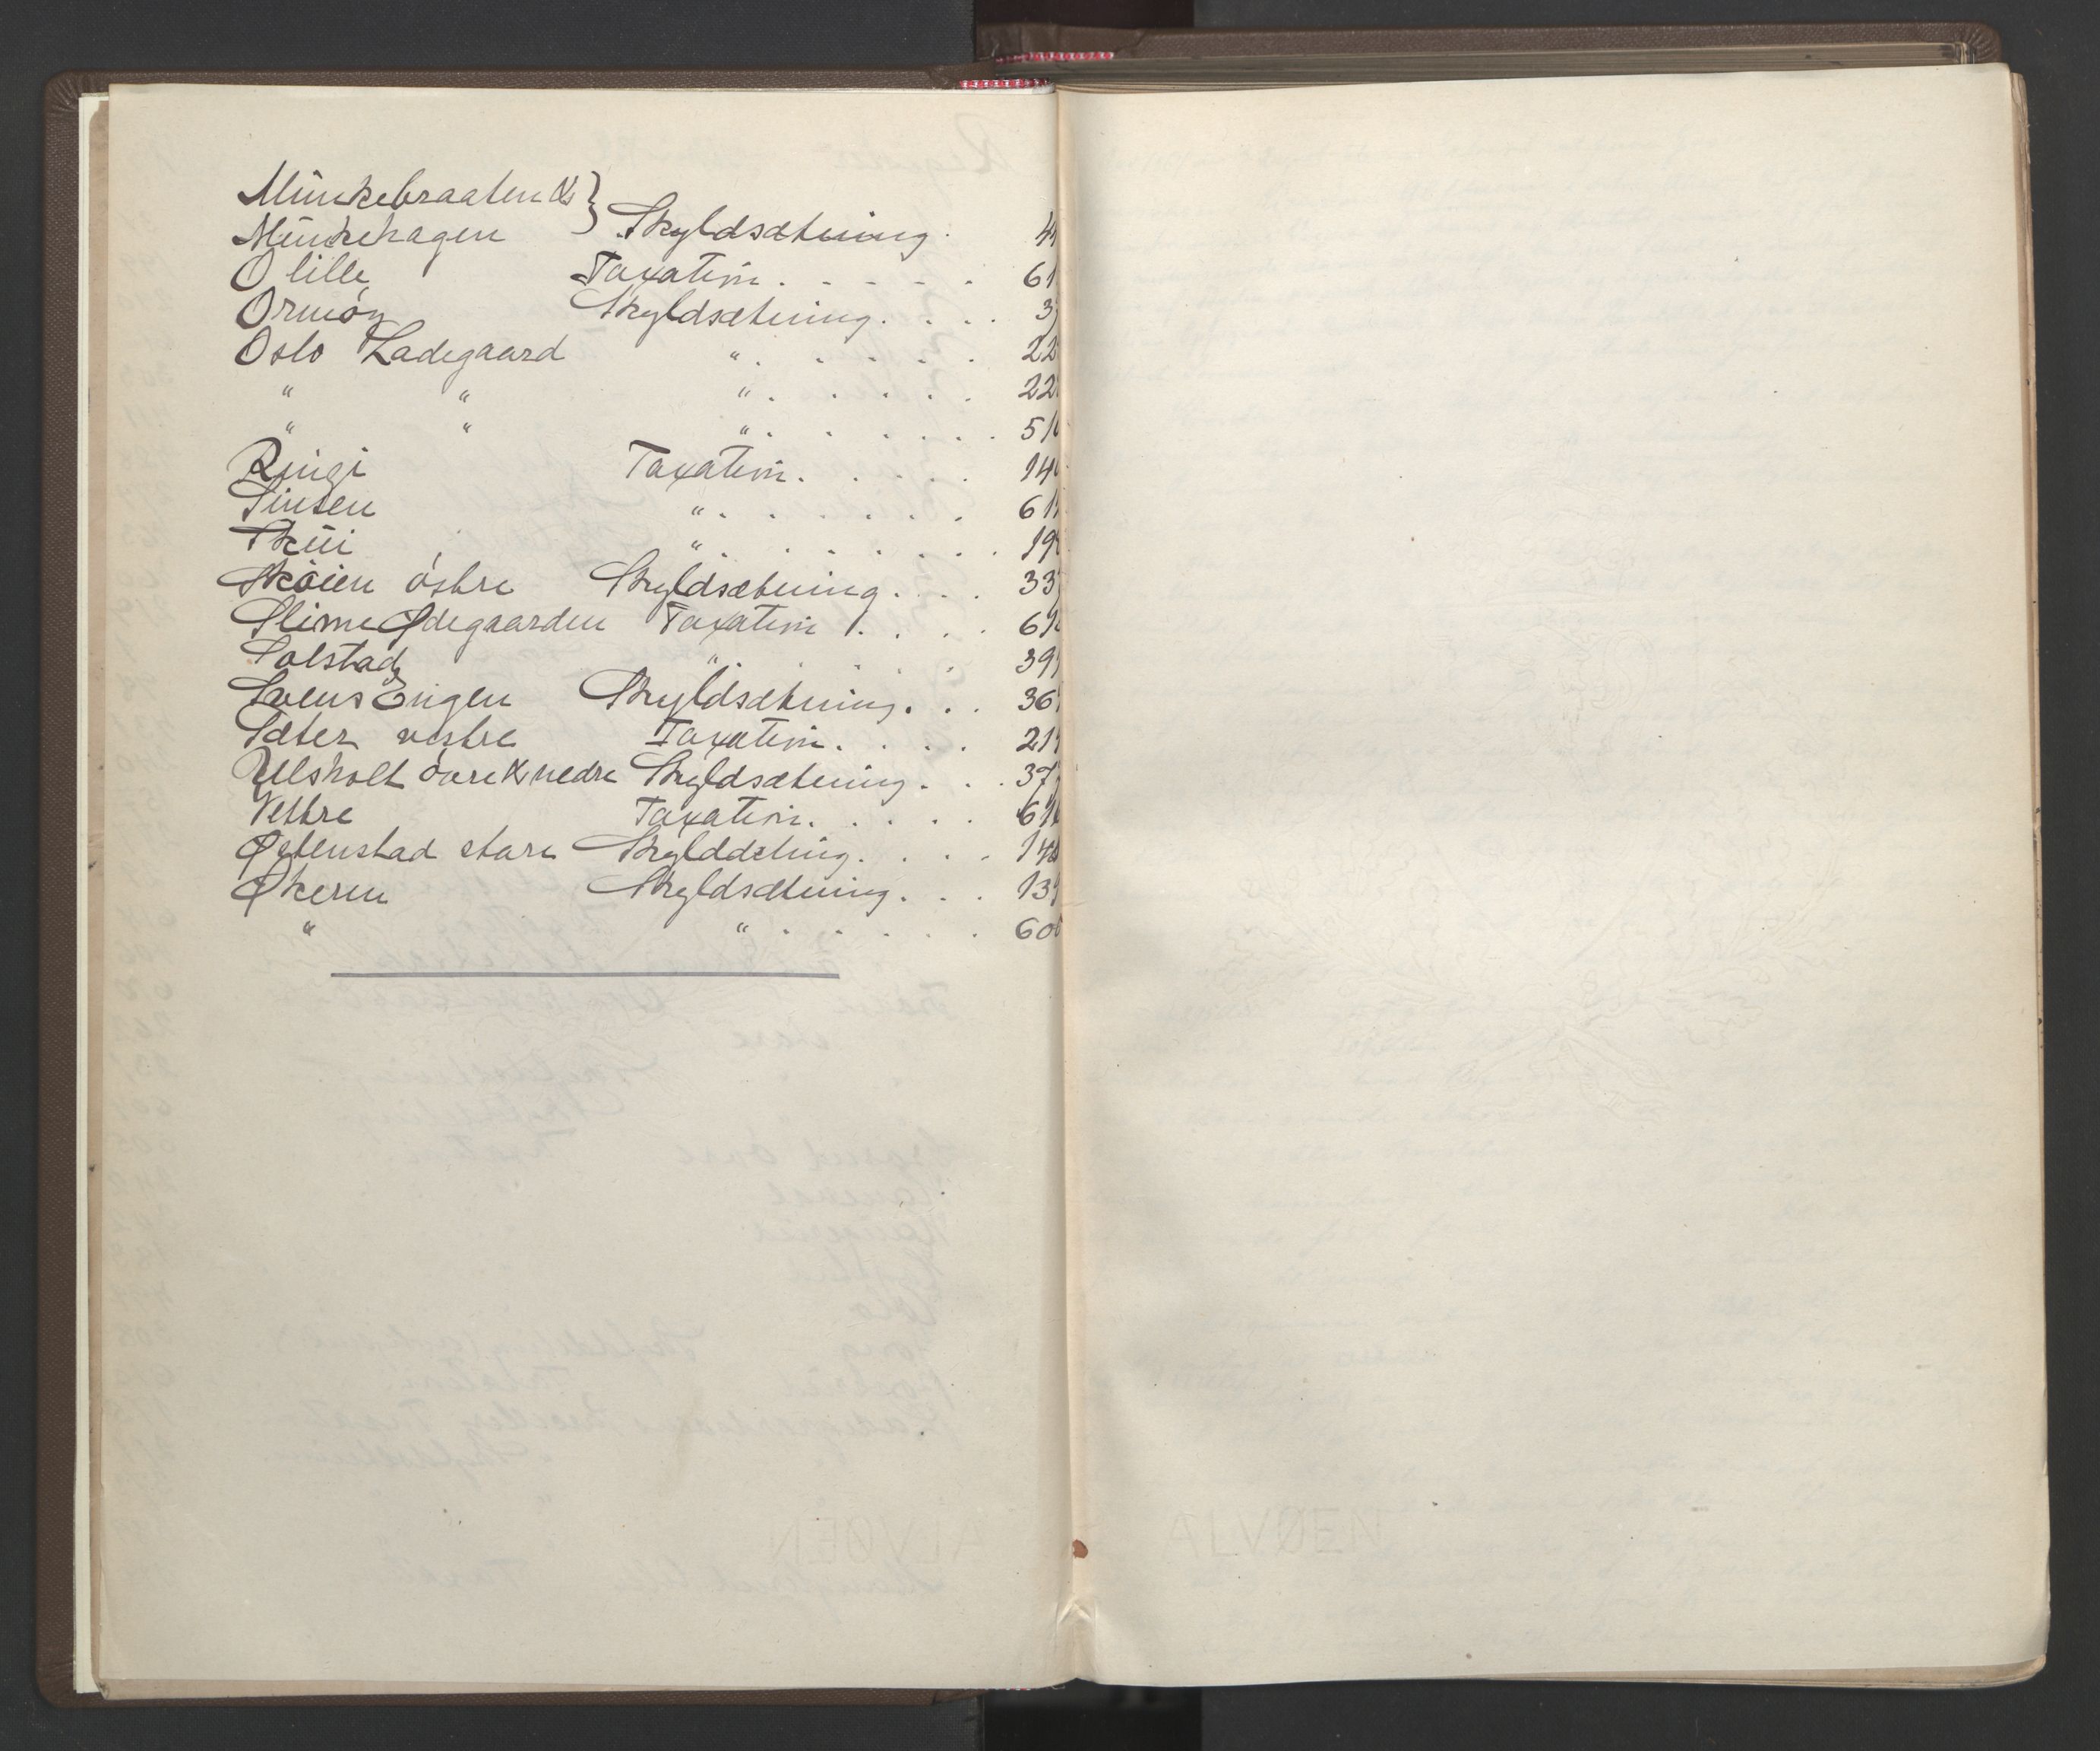 Munkebraaten & }
Munkehagen } Skyldsætning. 4
O lille Taxation . . . . . 61
Ormøn Skyldsætning. . . . 3
Oslo Ladegaard " . . . . . . 22
" " " . . . . . . 22
" " " . . . . . . . 51
Ringi Taxation. . . . . 14
Sinsen " . . . . . . . 61
Skui " . . . . . . . . 19
Skøien østre Skyldsætning. . . . 33
Slime Ødegaarden Taxation . . . . 61
Solstad " . . . . . . 39
Svens Engen Skyldsætning. . . 36
Sæter vestre Taxation. . . . 21
Ulsholt øvre & nedre Skyldsætning. . . 37
Vettre Taxation. . . . . 61
Østenstad store Skylddeling. . . . 14
Økern Skyldsætning. . . 13
" " . . . . . . 60
ALVØEN